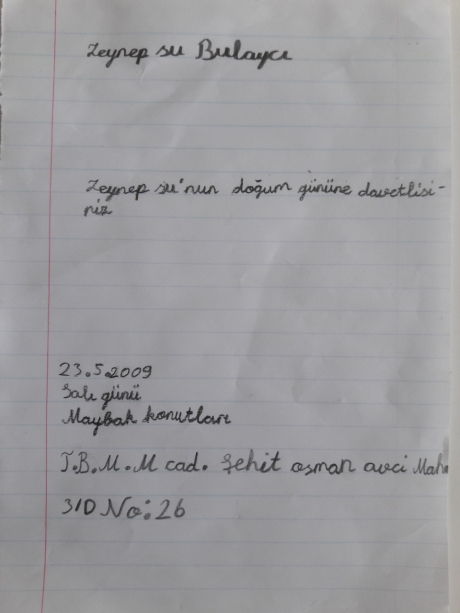 Zeynep su Bulaycı
Zeynep su'nun doğum gününe davetlisi-
niz
23.5.2009
Salı günü
Maybak konutları
T.B.M.M cad. Şehit osman avci Mah
3/D No: 26